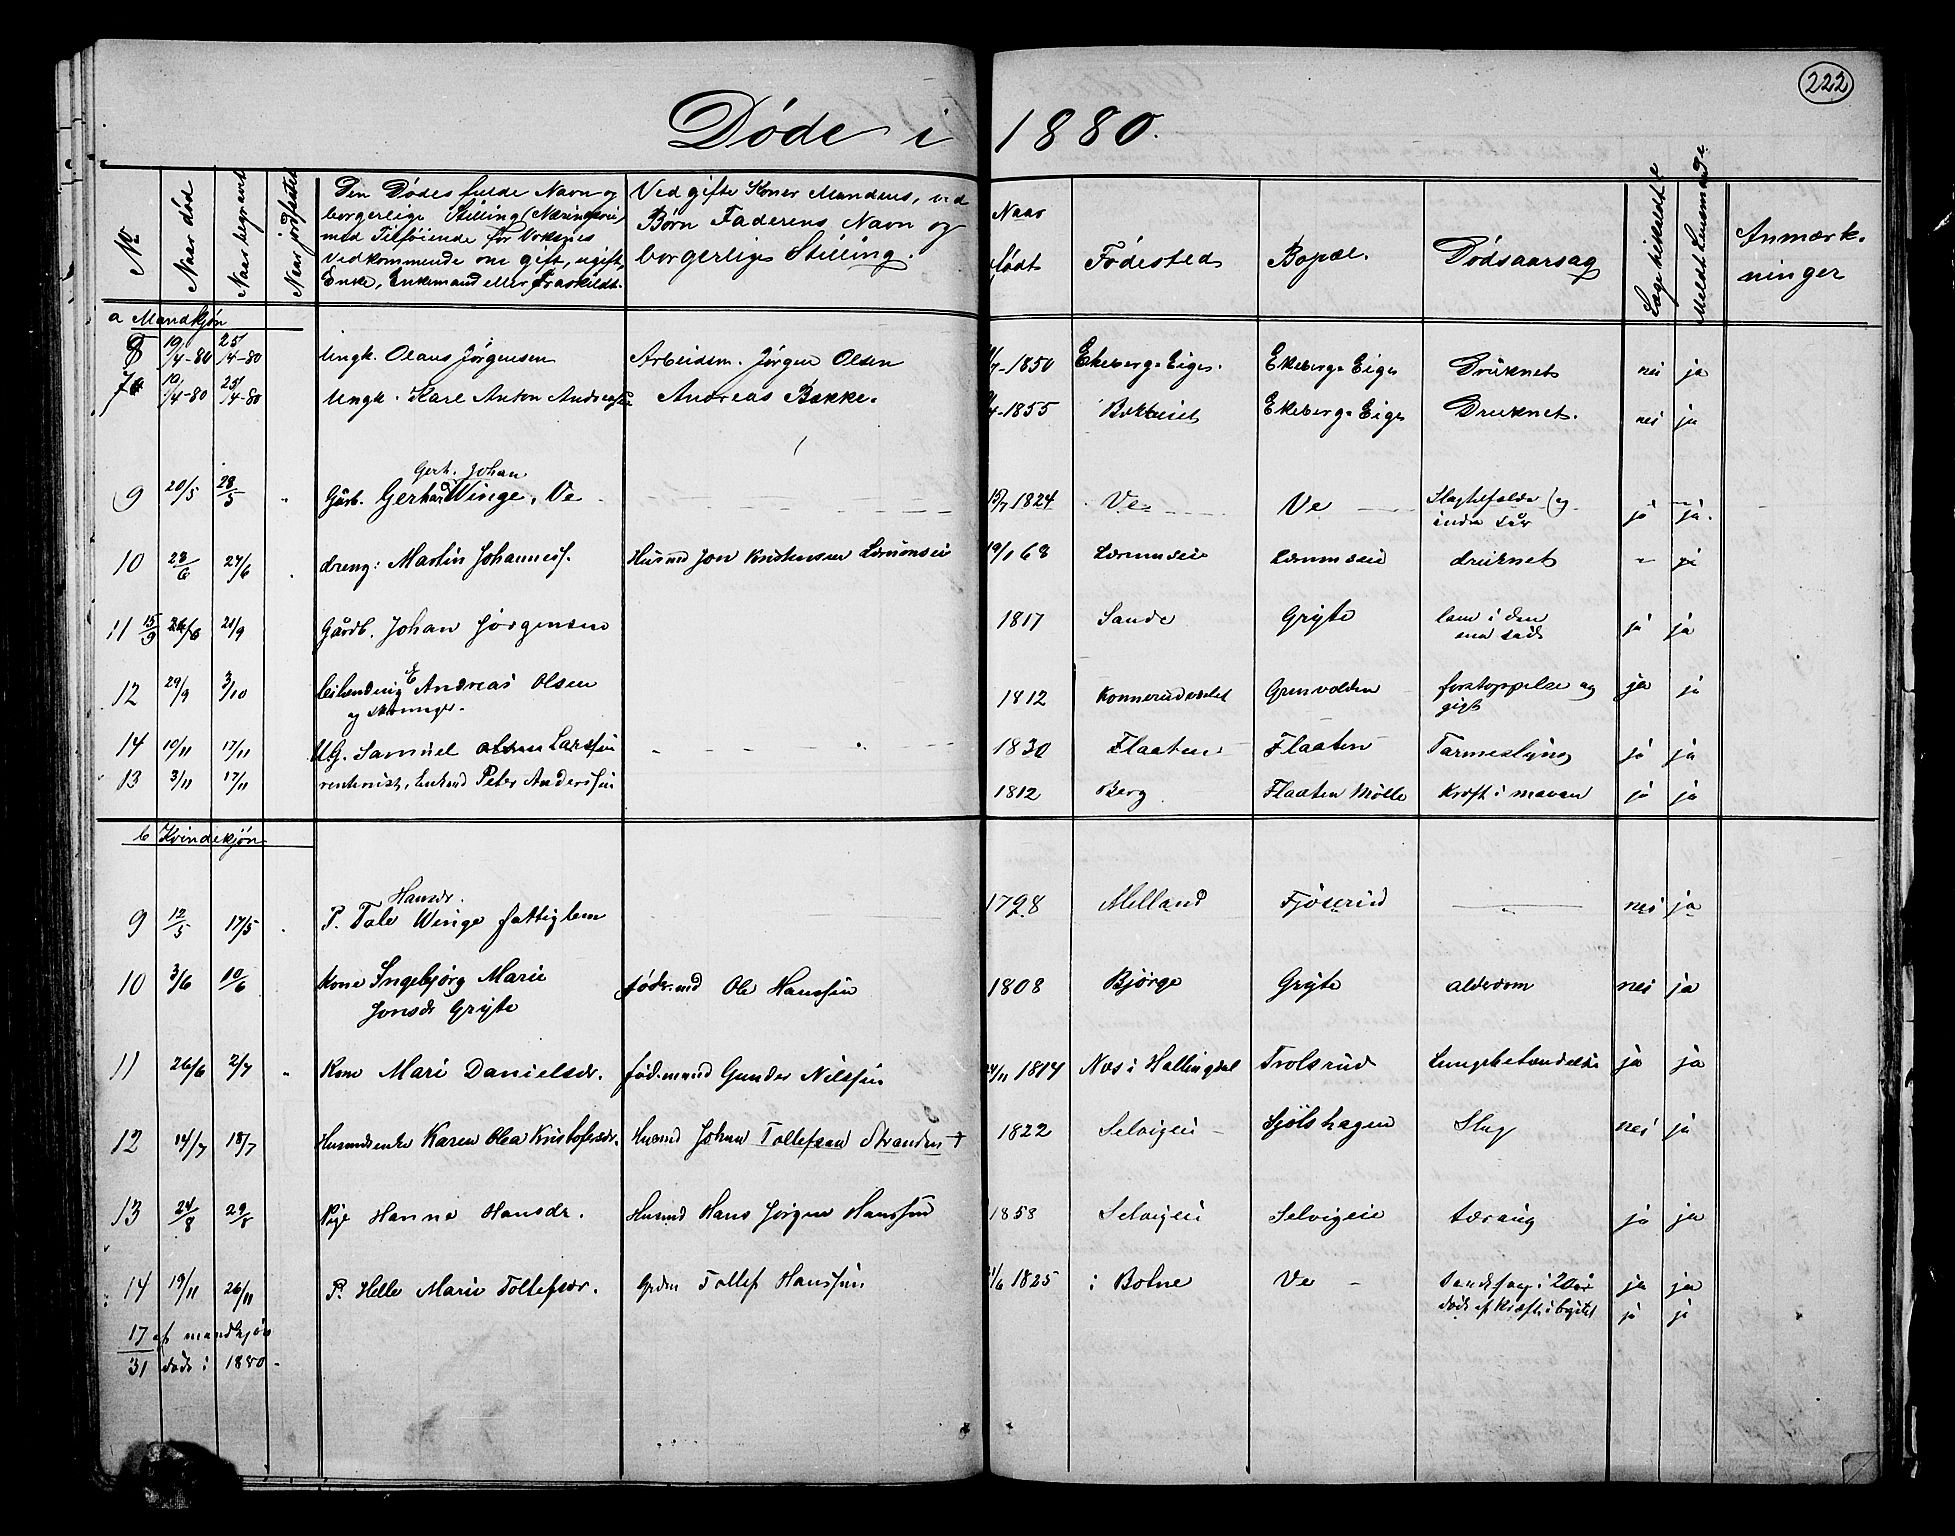 222
Døde i 1880.
No
Naar død
Naar begravet
Naar jordfæstet
Den Dødes fulde Navn og
borgerlige Stilling (Næringsvei)
med Tilføiende for Voksnes
Vedkommende om gift, ugift,
Enke, Enkemand eller Fraskildt.
Ved gifte Koner Mandens, ved
Børn Faderens Navn og
borgerlige Stilling.
Naar
født
Fødested
Bopæl.
Dødsaarsag
Læge tilkaldt
Meldt Lensmand
Anmærk-
ninger
a Mandkjøn
8 19/4-80 25/4-80 Ungk. Olaus Jørgensen Arbeidsm. Jørgen Olsen -1850 Ekeberg-Eiges. Ekeberg-Eige Druknet nei ja
7 19/4-80 25/4-80 Ungk. Karl Anton Andreas Bakke. -1855 Ekeberg-Eige Druknet. nei ja
Gerh. Johan
9 20/5 28/5 Gårb. Gerhard Winge, Ve 15/7 1824 Ve Ve og
jå ja.
10 23/6 27/6 dreng: Martin Johannesf. Husmd Jon Kristensen 19/1 68 druknet ja
11 15/9 21/9 Gårdb. Johan Jørgensen 1817 Sande Gryte lam i den
ena side jå ja
12 29/9 3/10 Andreas Olsen 1812 Grenvolden forstoppelse og ja jå
og gigt
14 10/11 17/11 UG. Samuel Larssen 1830 Flaaten Flaaten Tarmeslyng jå ja
13 3/11 17/11 rentenist, Enkemd Peter Anderssen 1812 Berg Flaaten Mølle Kræft i maven jå ja
b Kvindekjøn
Hansdr.
9 12/5 17/5 P. Tale Winge fattiglem 1798 Melland Fjøserud nei ja
10 3/6 10/6 Kone Ingebjørg Marie Ole Hanssen 1808 Bjørge Gryte alderdom nei ja
Jonsdr Gryte
11 26/6 2/7 Kone Mari Danielsdr. fød.mand Gunder Nilssen 1814 Næs i Hallingdal Trolsrud Lungebetændelse jå ja
12 14/7 18/7 Husmdsenke Karen Olea Kristofersdr. Husmd Johan Tollefsen Stranden + 1822 Selvigeie Sjølshagen Slag nei jå
13 24/8 29/8 Pige Hanna Hansdr. Husmd Hans Jørgen Hanssen 1858 Selvigeie Selvigeie tæring jå ja
14 19/11 26/11 P. Helle Marie Tollefsdr. Tollef Hanssen 1825 i Botne Ve i 20 år ja ja
døde af Kræft i brystet jå jå
17 af mandkjøn
31 døde i 1880-